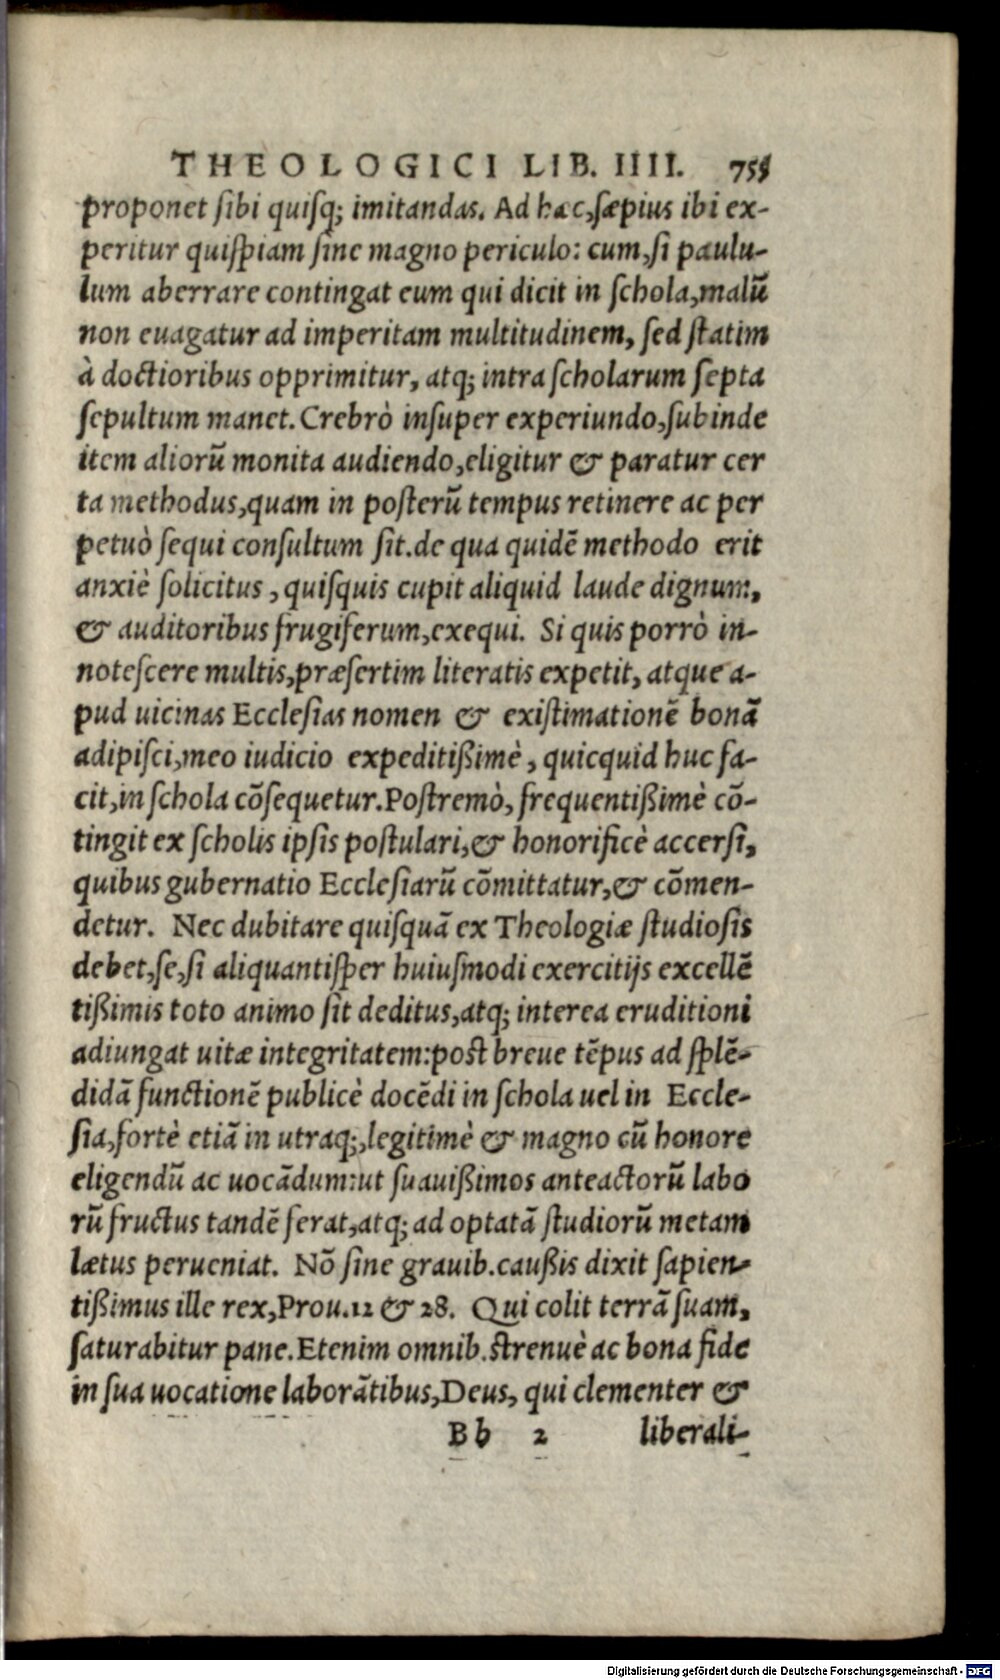 THEOLOGICI LIB. IIII. 755
proponet ſibi quiſq; imitandas. Ad hæc, ſæpius ibi ex-
peritur quiſpiam ſine magno periculo: cum, ſi paulu-
lum aberrare contingat eum qui dicit in ſchola, malũ
non euagatur ad imperitam multitudinem, ſed ſtatim
à doctioribus opprimitur, atq; intra ſcholarum ſepta
ſepultum manet. Crebrò inſuper experiundo, ſubinde
item aliorũ monita audiendo, eligitur & paratur cer
ta methodus, quam in poſterũ tempus retinere ac per
petuò ſequi conſultum ſit. de qua quidẽ methodo erit
anxiè ſolicitus, quiſquis cupit aliquid laude dignum,
& auditoribus frugiferum, exequi. Si quis porrò in-
noteſcere multis, præſertim literatis expetit, atque a-
pud uicinas Eccleſias nomen & exiſtimationẽ bonã
adipiſci, meo iudicio expeditißimè, quicquid huc fa-
cit, in ſchola cõſequetur. Poſtremò, frequentißimè cõ-
tingit ex ſcholis ipſis poſtulari, & honorificè accerſi,
quibus gubernatio Eccleſiarũ cõmittatur, & cõmen-
detur. Nec dubitare quiſquã ex Theologiæ ſtudioſis
debet, ſe, ſi aliquantiſper huiuſmodi exercitijs excellẽ
tißimis toto animo ſit deditus, atq; interea eruditioni
adiungat uitæ integritatem: poſt breue tẽpus ad ſplẽ-
didã functionẽ publicè docẽdi in ſchola uel in Eccle-
ſia, fortè etiã in utraq;, legitimè & magno cũ honore
eligendũ ac uocãdum: ut ſuauißimos anteactorũ labo
rũ fructus tandẽ ferat, atq; ad optatã ſtudiorũ metam
lætus perueniat. Nõ ſine grauib. caußis dixit ſapien-
tißimus ille rex, Prou. 12 & 28. Qui colit terrã ſuam,
ſaturabitur pane. Etenim omnib. ſtrenuè ac bona fide
in ſua uocatione laborãtibus, Deus, qui clementer &
Bb 2 liberali-
Digitalisierung gefördert durch die Deutsche Forschungsgemeinschaft - DFG